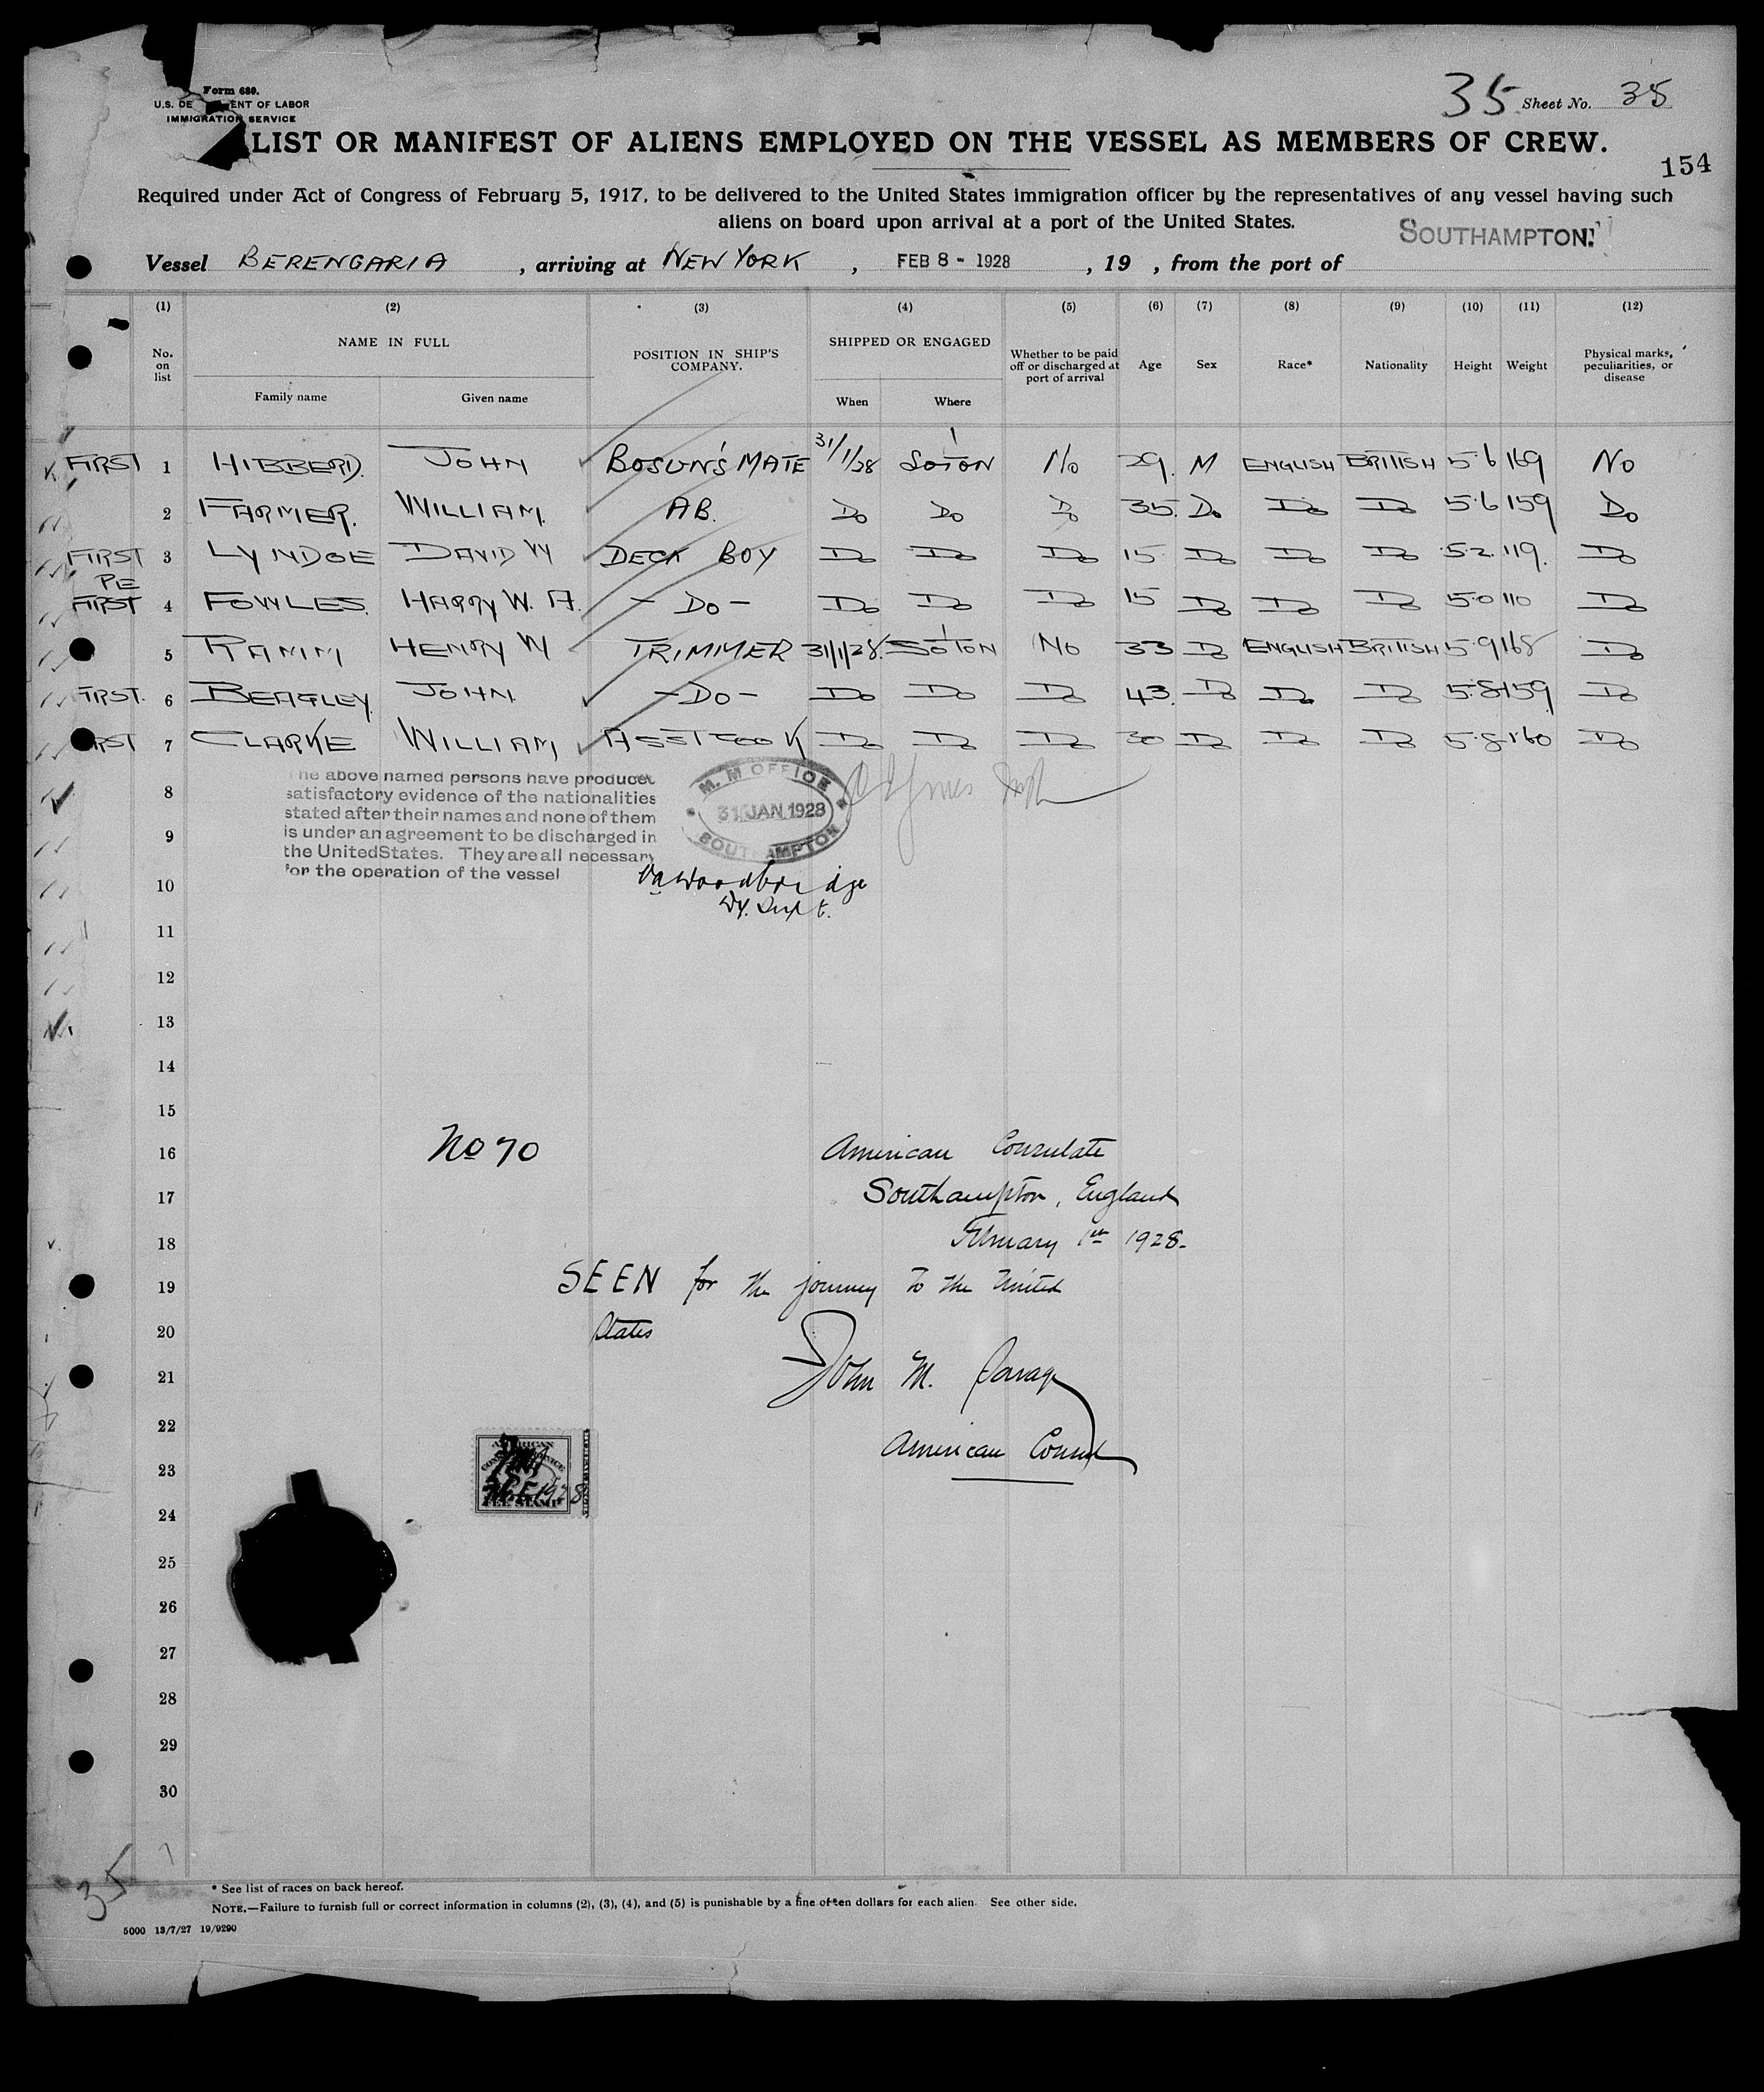 Form 680.
U.S. DE ENT OF LABOR
IMMIGRATION SERVICE
35 Sheet No. 35
LIST OR MANIFEST OF ALIENS EMPLOYED ON THE VESSEL AS MEMBERS OF CREW.
154
Required under Act of Congress of February 5, 1917, to be delivered to the United States immigration officer by the representatives of any vessel having such
aliens on board upon arrival at a port of the United States.
Vessel BERENGARIA , arriving at NEW YORK , FEB 8 - 1928 , 19 , from the port of SOUTHAMPTON
(1) (2) (3) (4) (5) (6) (7) (8) (9) (10) (11) (12)
No. on list NAME IN FULL Family name Given name POSITION IN SHIP'S COMPANY. SHIPPED OR ENGAGED When Where Whether to be paid off or discharged at port of arrival Age Sex Race* Nationality Height Weight Physical marks, peculiarities, or disease
FIRST 1 HIBBERD. JOHN BOSUN'S MATE 31/1/28 SO'TON No 29. M ENGLISH BRITISH 5·6 169 No
2 FARMER. WILLIAM. AB. Do Do Do 35. Do Do Do 5·6 159 Do
FIRST 3 LYNDGE DAVID W DECK BOY Do Do Do 15 Do Do Do 5·2 119. Do
PE
FIRST 4 FOWLES. HARRY W. A. - Do - Do Do Do 15 Do Do Do 5·0 110 Do
5 RANM HENRY W TRIMMER 31/1/28. SO'TON No 33 Do ENGLISH BRITISH 5·9 168 Do
FIRST. 6 BEAGLEY JOHN. - Do - Do Do Do 43. Do Do Do 5·8 159 Do
FIRST 7 CLARKE WILLIAM ASST COOK Do Do Do 30 Do Do Do 5·8 160 Do
The above named persons have produced
satisfactory evidence of the nationalities
stated after their names and none of them
is under an agreement to be discharged in
the United States. They are all necessary
for the operation of the vessel
M. M OFFICE
31 JAN 1928
SOUTHAMPTON
Woodbridge
Dy. Supt.
8
9
10
11
12
13
14
15
16 No 70 American Consulate
17 Southampton, England
18 February 1st 1928.
19 SEEN for the journey to the United
20 States
21 John M. Savage
22 American Consul
23
24
AMERICAN
FEE STAMP
25
26
27
28
29
30
35
* See list of races on back hereof.
NOTE.—Failure to furnish full or correct information in columns (2), (3), (4), and (5) is punishable by a fine of ten dollars for each alien. See other side.
5000 13/7/27 19/9290